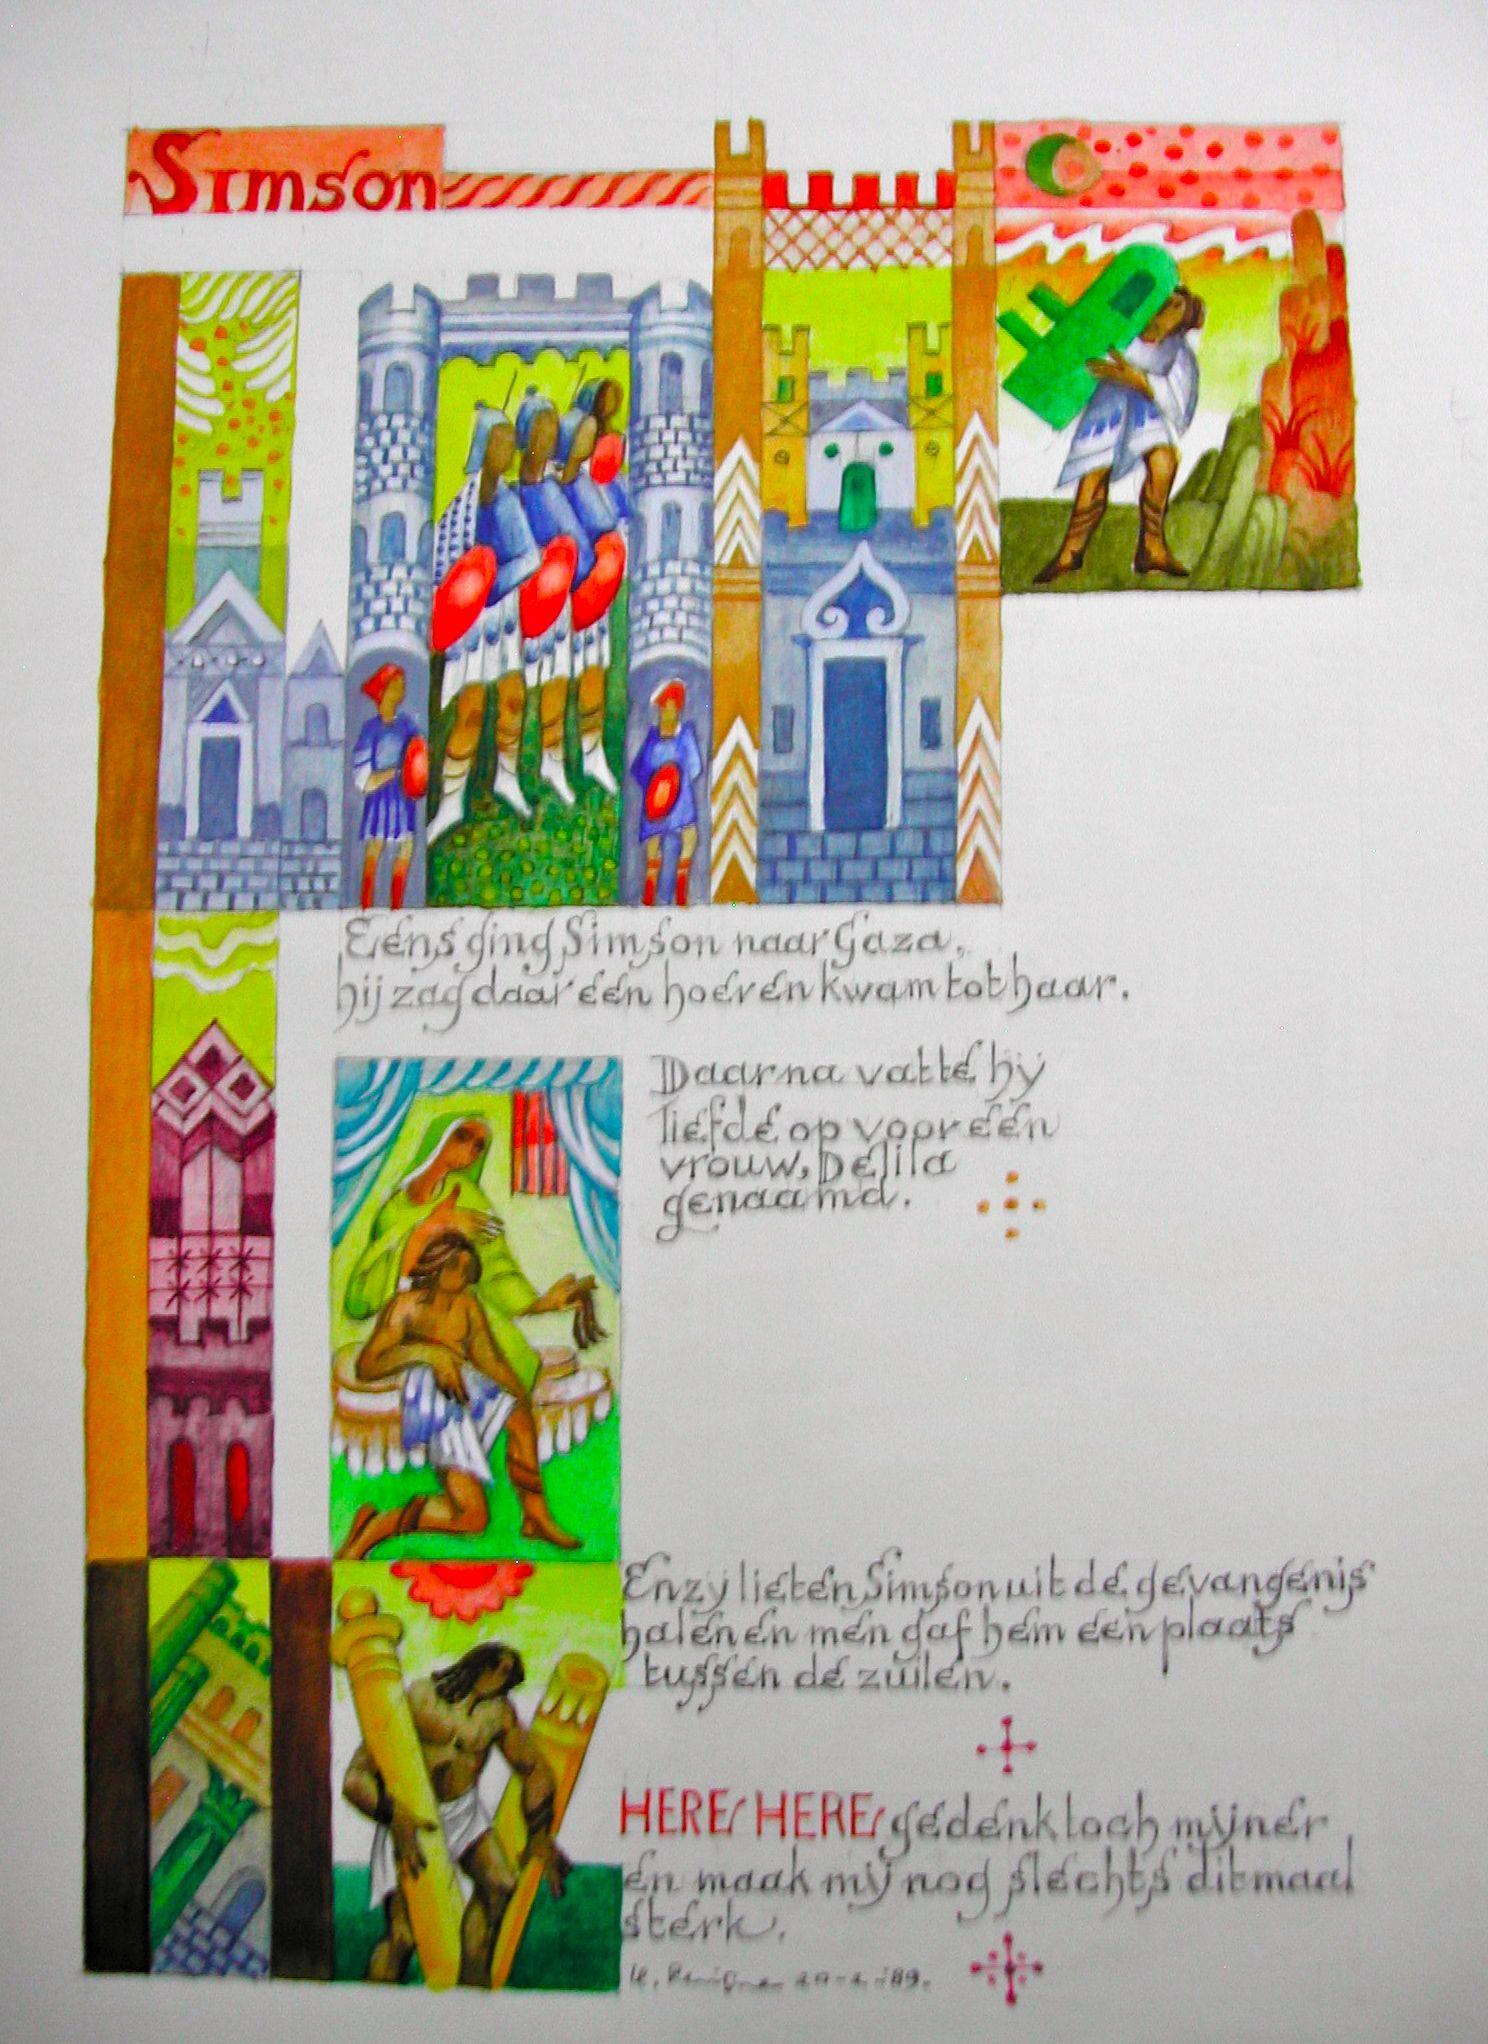 Simson
Eens ging Simson naar Gaza,
hij zag daar een hoer en kwam tot haar.
Daarna vatte hy
liefde op voor een
vrouw, Delila
genaamd.
En zy lieten Simson uit de gevangenis
halen en men gaf hem een plaats
tussen de zuilen.
HERE HERE gedenk toch mijner
en maak mij nog slechts ditmaal
sterk.
'89.